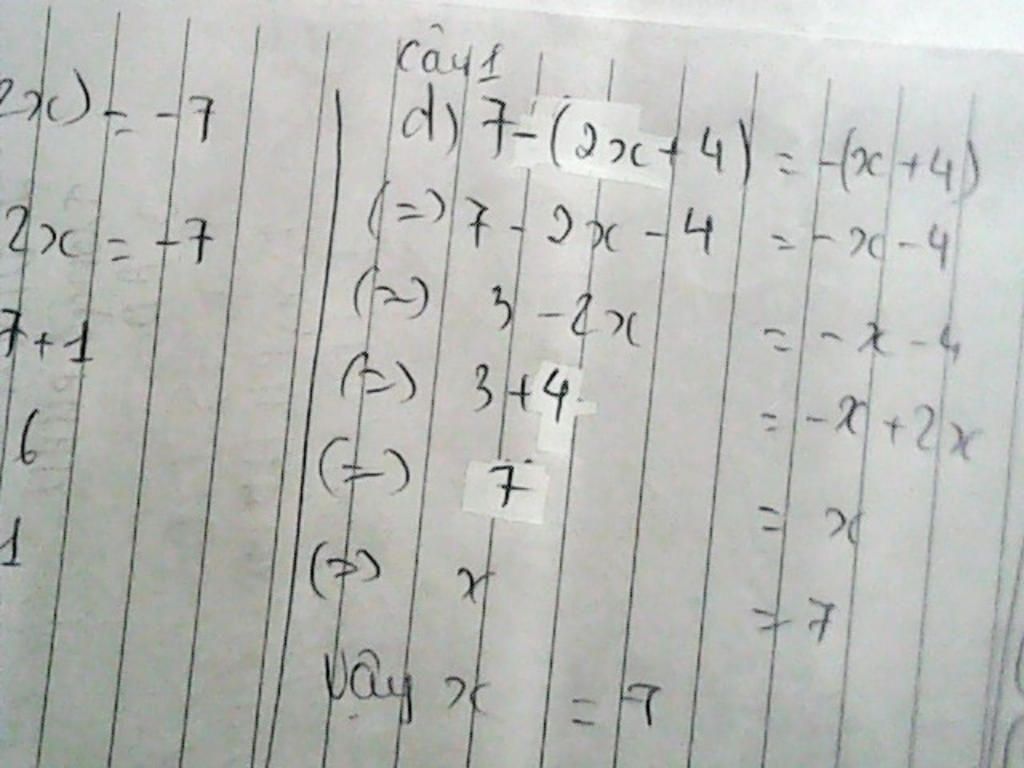 2x) = -7
2x = -7
7+1
6
1
Câu 1
d) 7-(2x+4) = -(x+4)
(=) 7 - 2x - 4 = -x-4
(=) 3 -2x = -x-4
(=) 3+4 = -x+2x
(=) 7 = x
(=) x = 7
Vậy x = 7